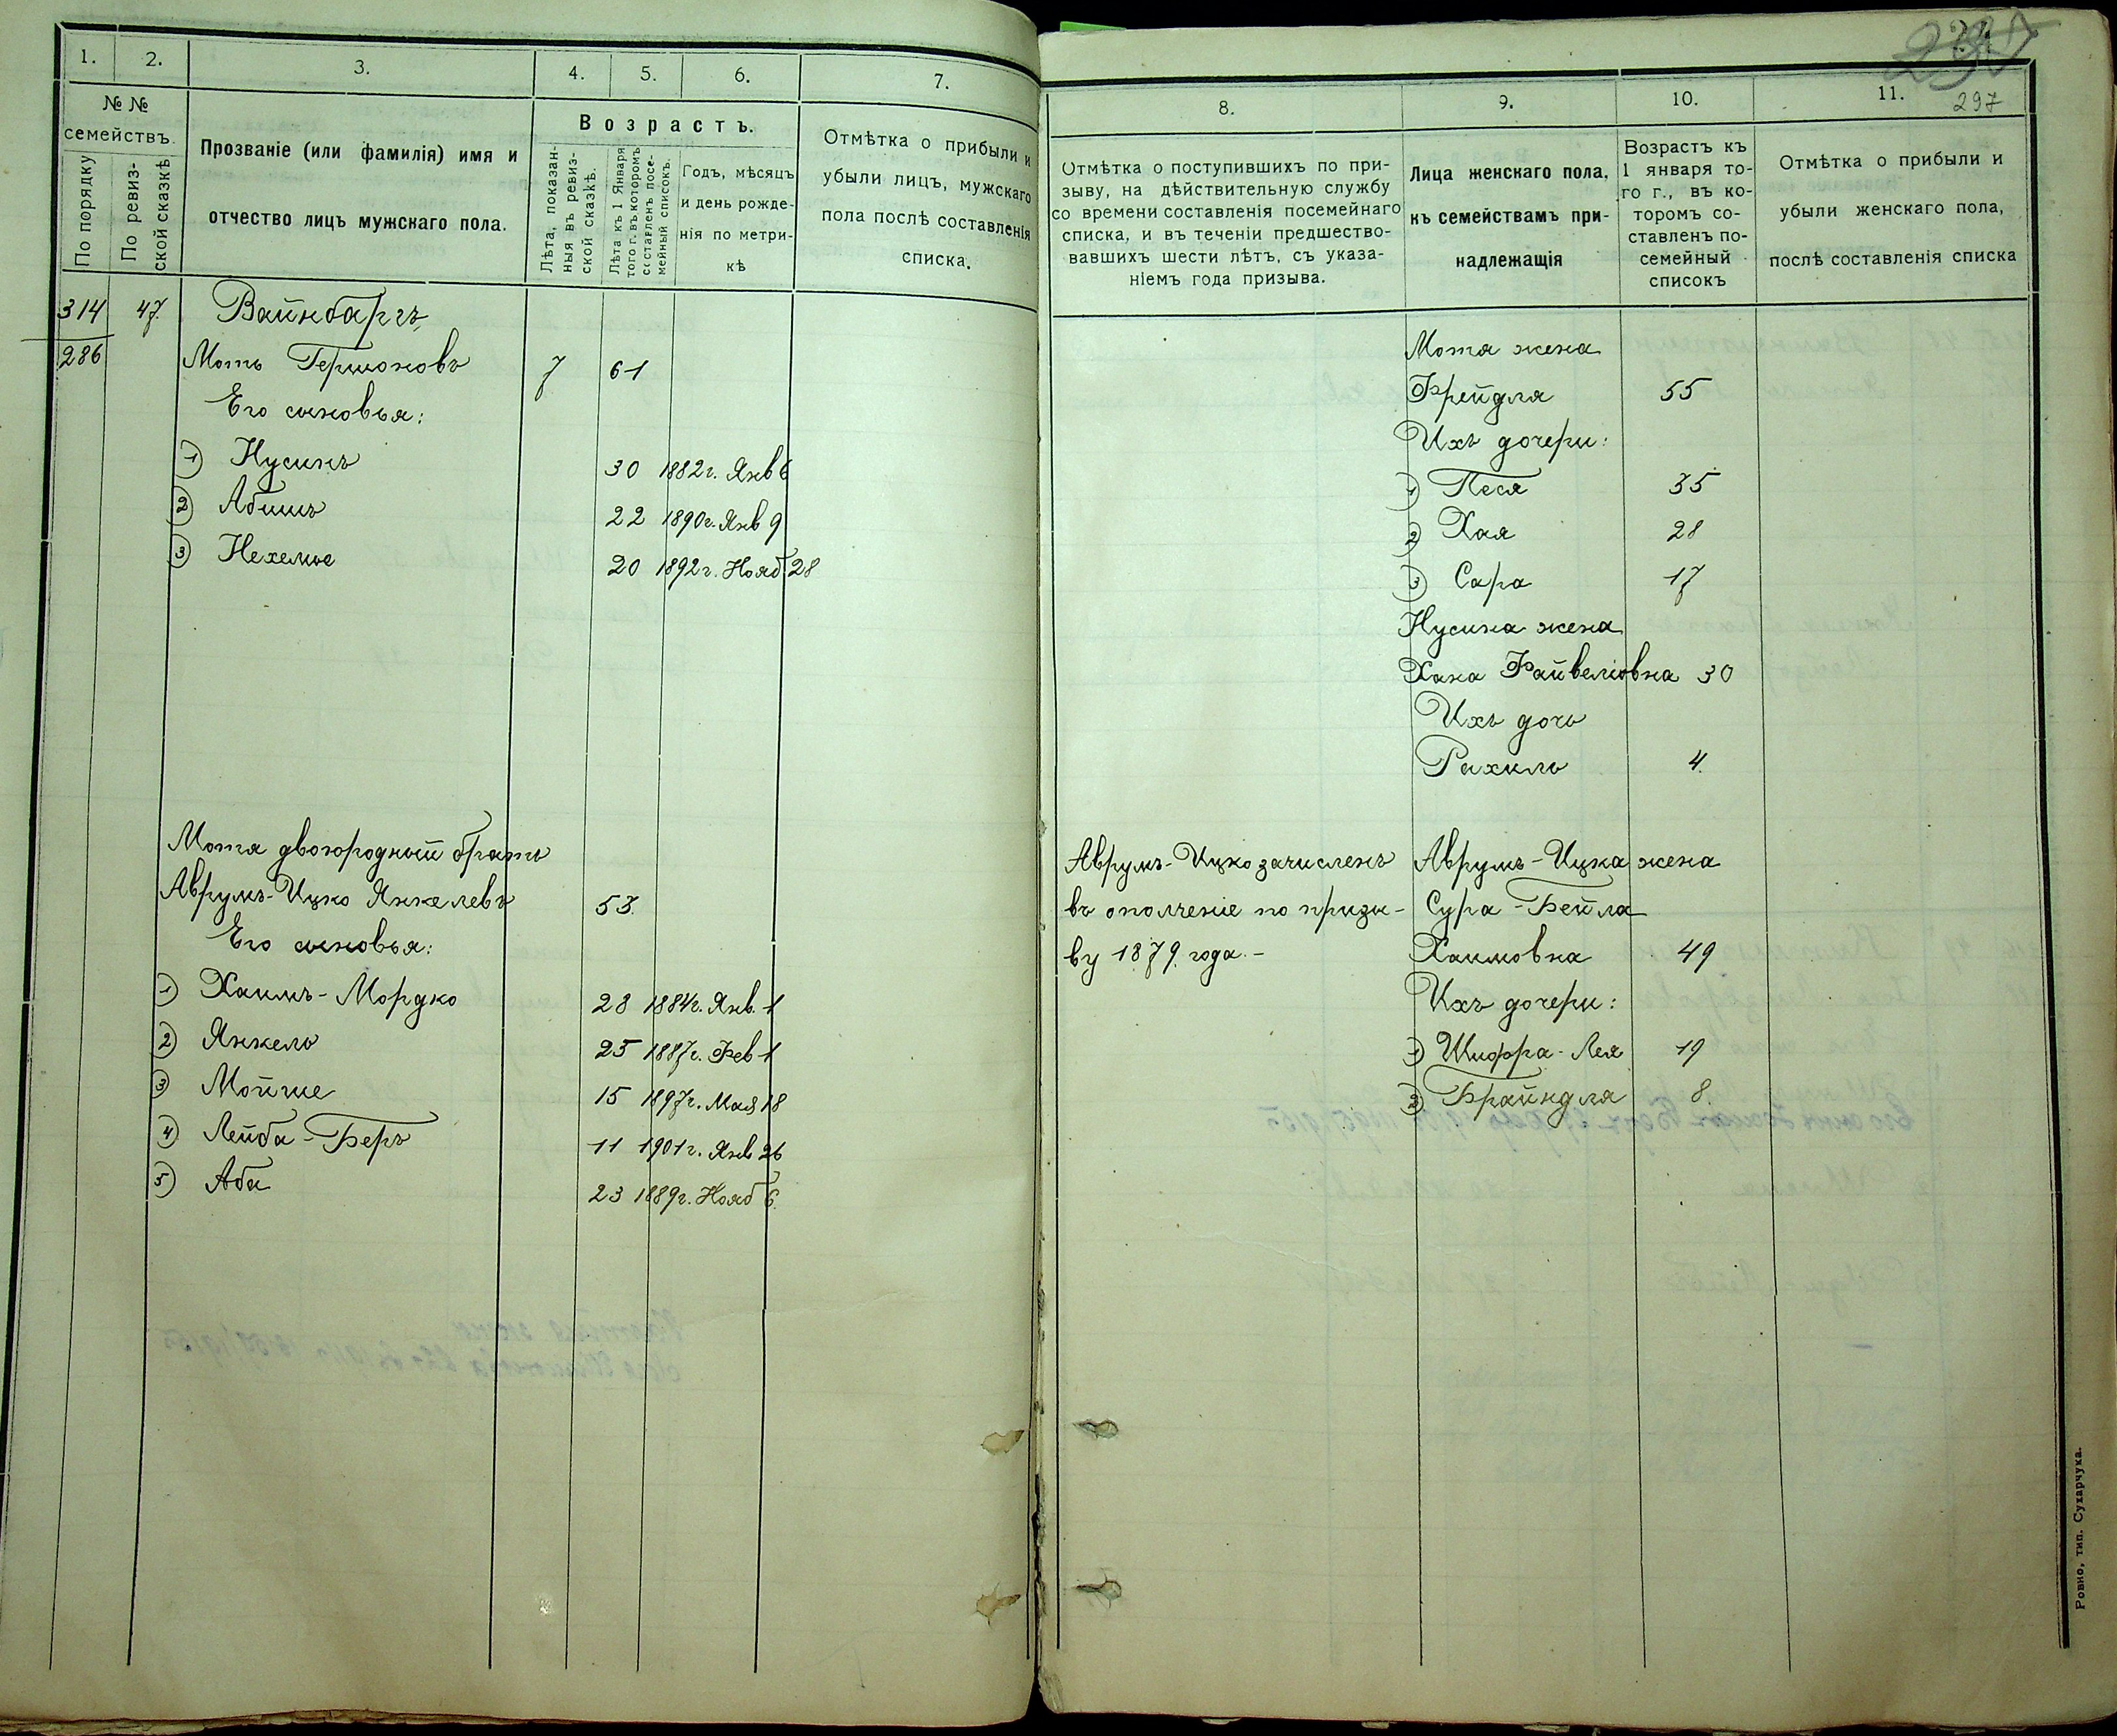 1.
2.
3.
4.
5.
6.
7.
№ №
семействъ.
По порядку
По ревиз-
ской сказкѣ
Прозваніе (или фамилія) имя и
отчество лицъ мужскаго пола.
Возрастъ.
Лѣта, показан-
ныя въ ревиз-
ской сказкѣ.
Лѣта къ 1 Января
того г. въ которомъ
составленъ посе-
мейный списокъ.
Годъ, мѣсяцъ
и день рожде-
нія по метри-
кѣ
Отмѣтка о прибыли и
убыли лицъ, мужскаго
пола послѣ составленія
списка.
314 47 Вайнбаргъ
286 Моть Гершоновъ 7 61
Его сыновья:
1) Нусинъ 30 1882г. Янв 6
2) Абишъ 22 1890г. Янв 9
3) Нехемье 20 1892г. Нояб. 28
Мотя двоюродный братъ
Аврумъ-Ицко Янкелевъ 53.
Его сыновья:
1) Хаимъ-Мордко 28 1884г. Янв. 1
2) Янкель 25 1887г. Фев 1
3) Мойше 15 1897г. Мая 18
4) Лейба-Беръ 11 1901г. Янв 26
5) Аба 23 1889г. Нояб 6.
297
8.
9.
10.
11.
Отмѣтка о поступившихъ по при-
зыву, на дѣйствительную службу
со времени составленія посемейнаго
списка, и въ теченіи предшество-
вавшихъ шести лѣтъ, съ указа-
ніемъ года призыва.
Лица женскаго пола,
къ семействамъ при-
надлежащія
Возрастъ къ
1 января то-
го г., въ ко-
торомъ со-
ставленъ по-
семейный
списокъ
Отмѣтка о прибыли и
убыли женскаго пола,
послѣ составленія списка
Мотя жена
Фрейдля 55
Ихъ дочери:
1) Песя 35
2) Хая 28
3) Сара 17
Нусина жена
Хана Файвелiовна 30
Ихъ дочь
Рахиль 4.
Аврумъ-Ицко зачисленъ Аврумъ-Ицка жена
въ ополченіе по призы- Сура-Бейла
ву 1879 года.- Хаимовна 49
Ихъ дочери:
1) Шифра-Лея 19
2) Брайндля 8.
Ровно, тип. Сухарчука.